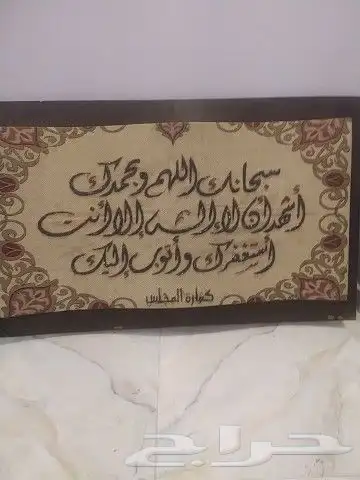 سبحانك اللهم وبحمدك
أشهد أن لا إله إلا أنت
أستغفرك وأتوب إليك
كفارة المجلس
حراج